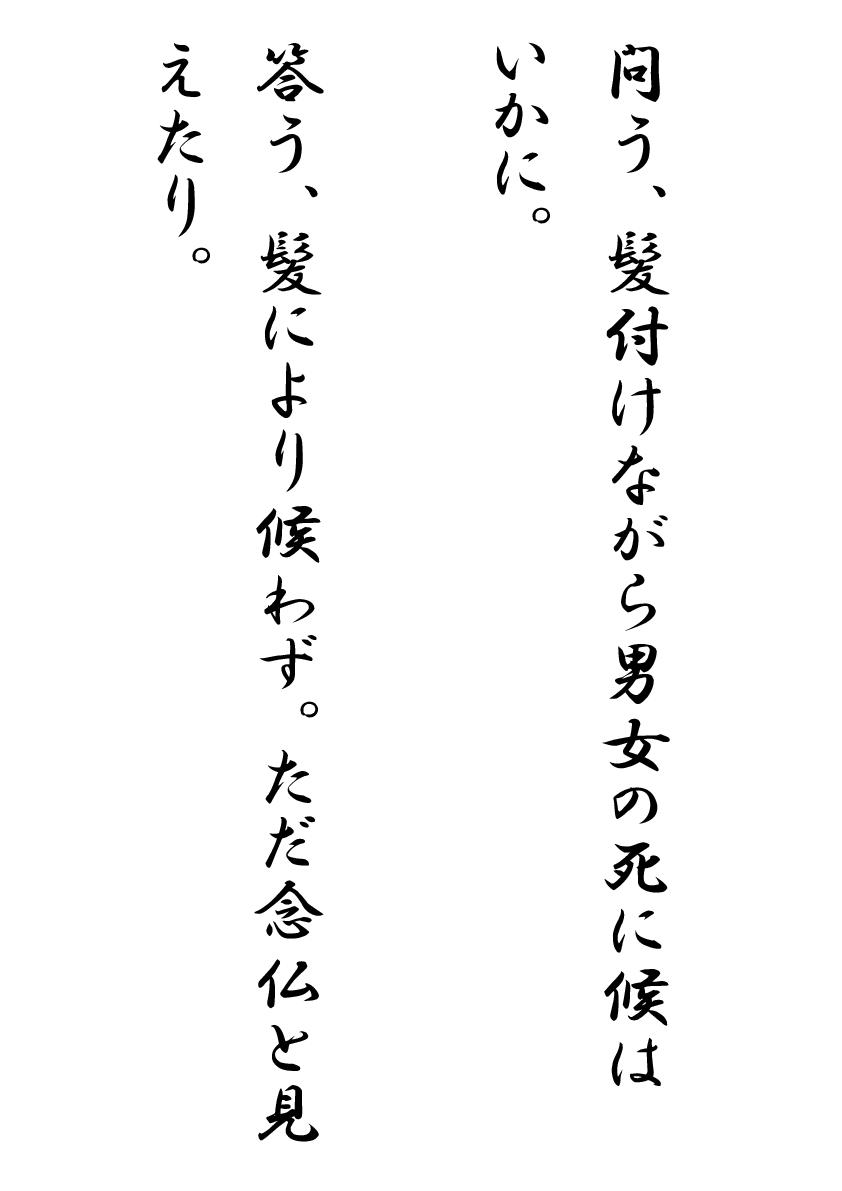 問う、髪付けながら男女の死に候は
いかに。
答う、髪により候わず。ただ念仏と見
えたり。